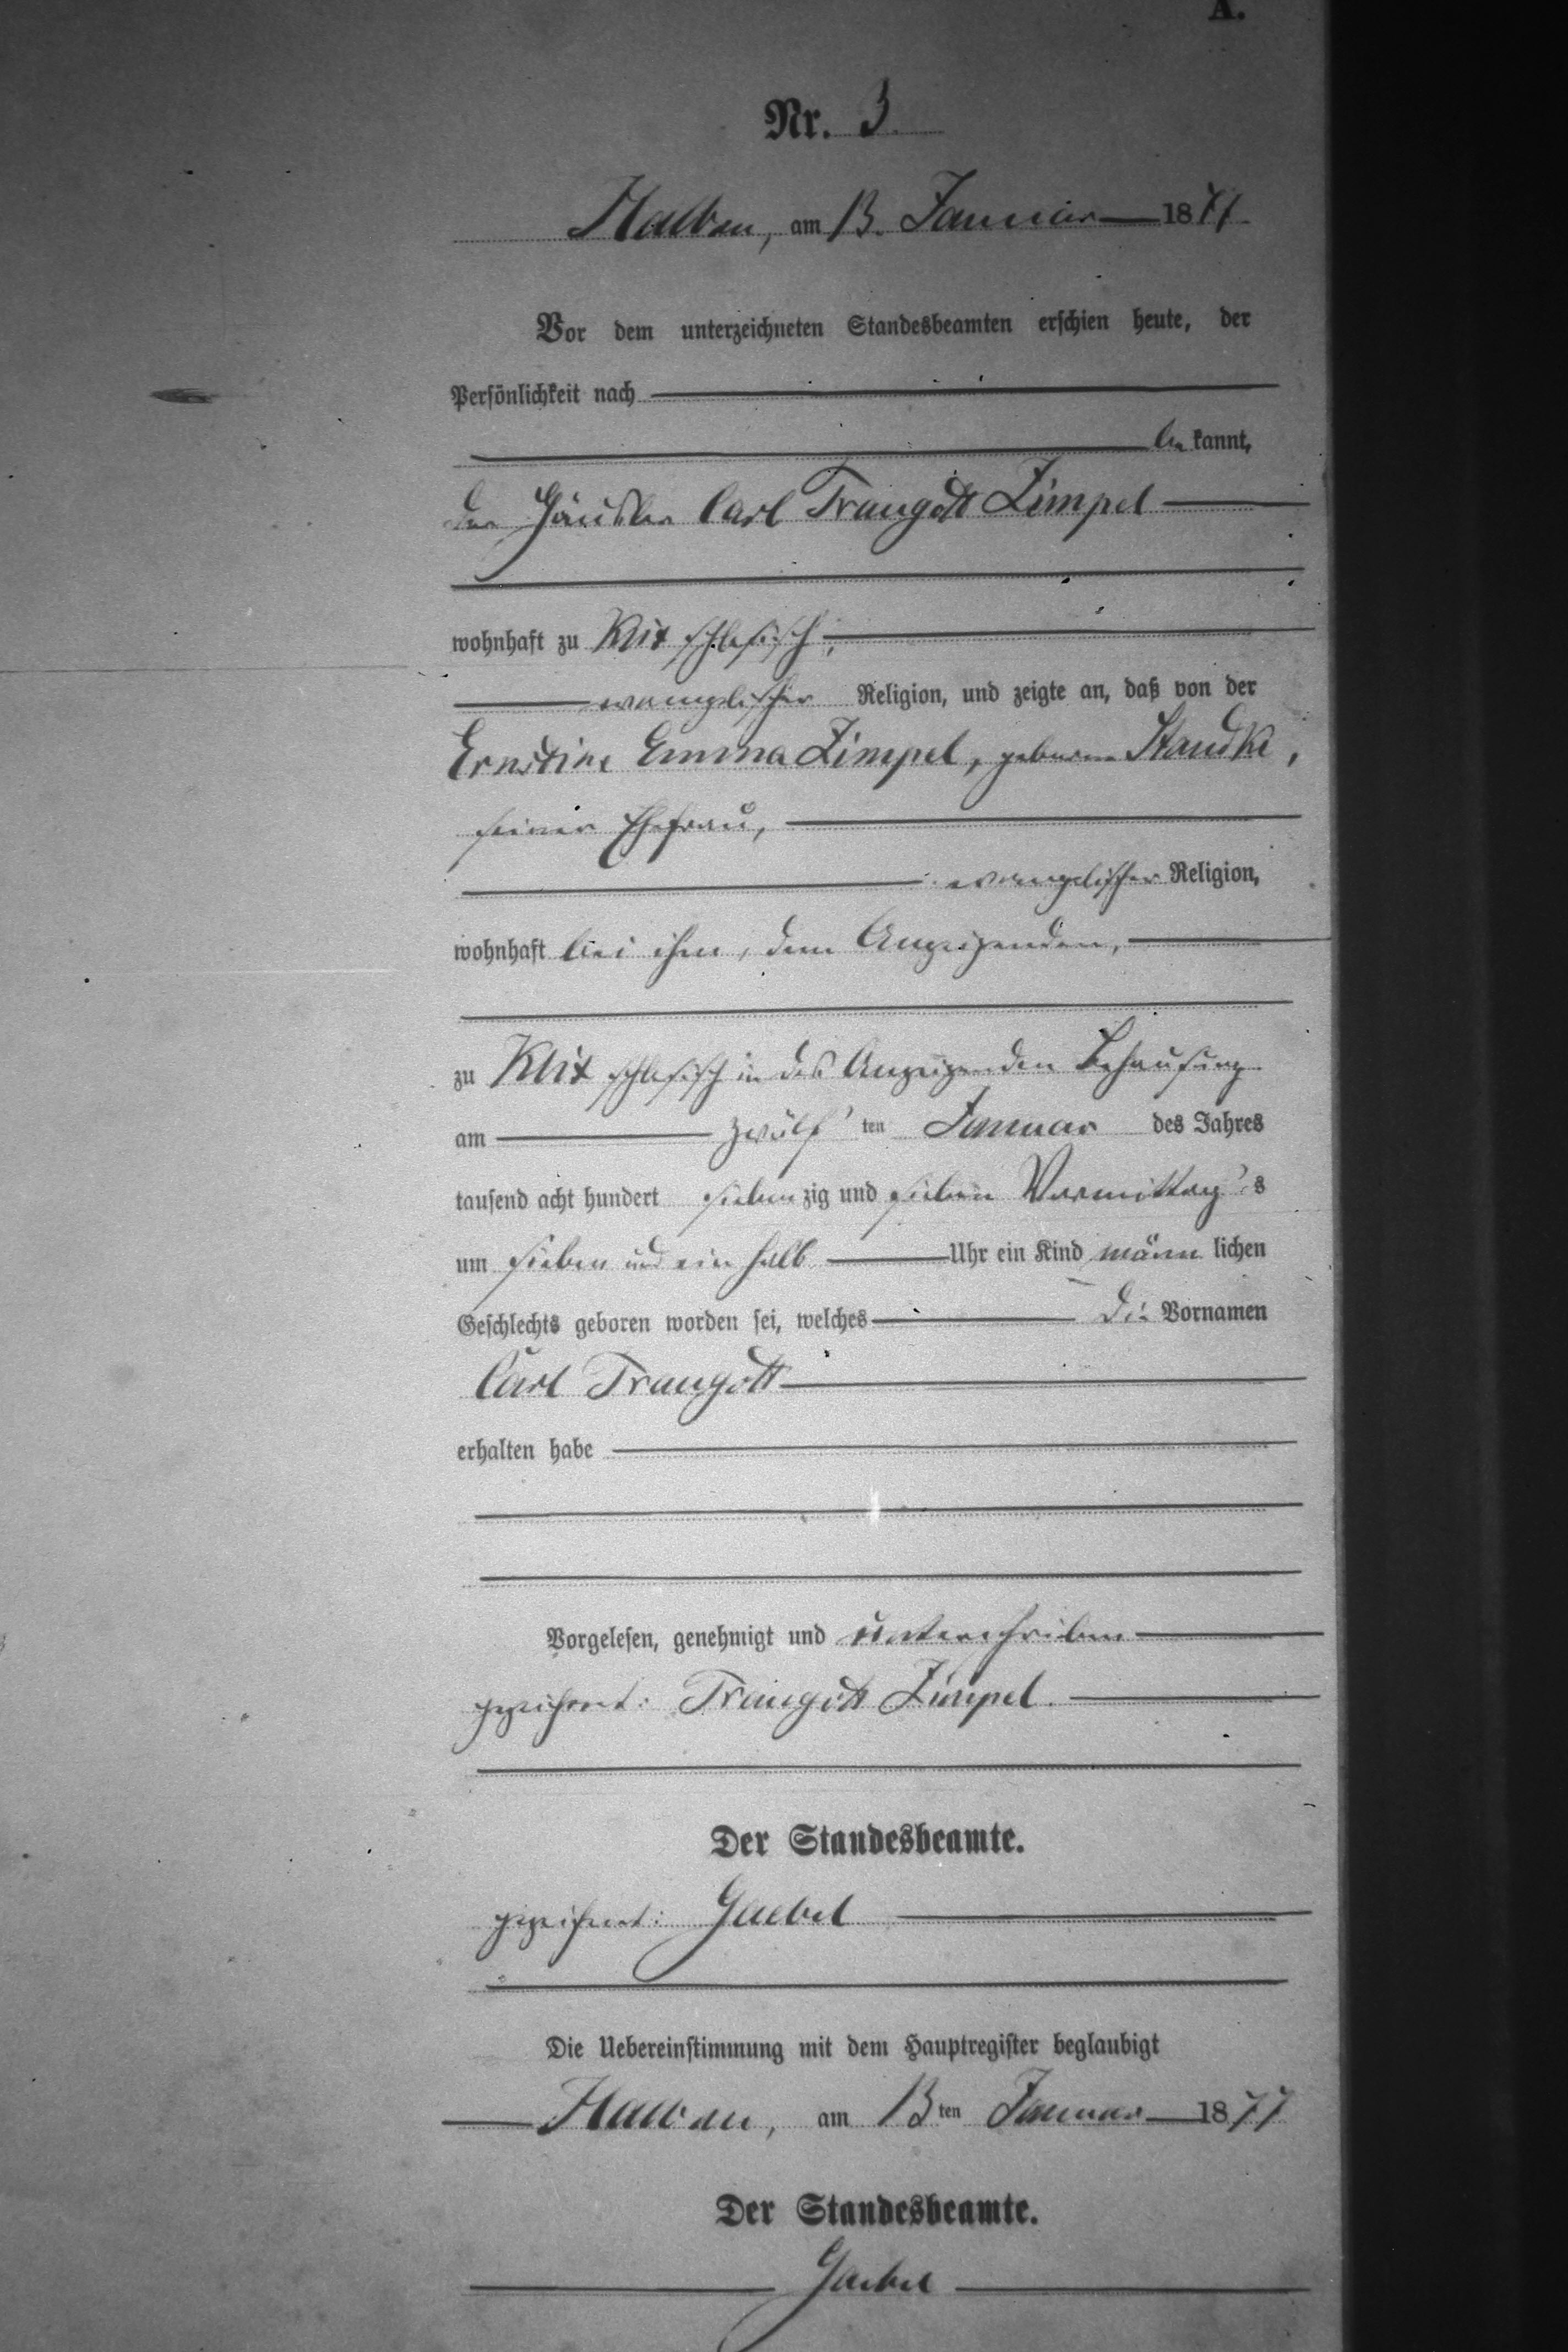 A.
Nr. 3.
Halbau, am 13. Januar 1877.
Vor dem unterzeichneten Standesbeamten erschien heute, der
Persönlichkeit nach
be kannt,
der Häusler Carl Traugott Zimpel
wohnhaft zu Klix schlesisch,
evangelischer Religion, und zeigte an, daß von der
Ernstine Emma Zimpel, geborene Staudke,
seiner Ehefrau,
evangelischer Religion,
wohnhaft bei ihm, dem Anzeigenden,
zu Klix schlesisch in des Anzeigenden Behausung
am zwölf ten Januar des Jahres
tausend acht hundert sieben zig und sieben Vormittag s
um sieben und ein halb Uhr ein Kind männ lichen
Geschlechts geboren worden sei, welches die Vornamen
Carl Traugott
erhalten habe
Vorgelesen, genehmigt und unterschrieben
gezeichnet: Traugott Zimpel.
Der Standesbeamte.
gezeichnet: Gaebel
Die Uebereinstimmung mit dem Hauptregister beglaubigt
Halbau, am 13 ten Januar 1877
Der Standesbeamte.
Gaebel